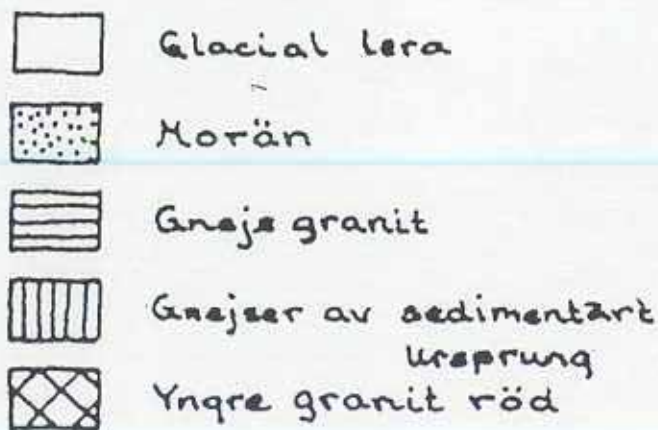 Glacial lera
Morän
Gnejs granit
Gnejser av sedimentärt
ursprung
Yngre granit röd